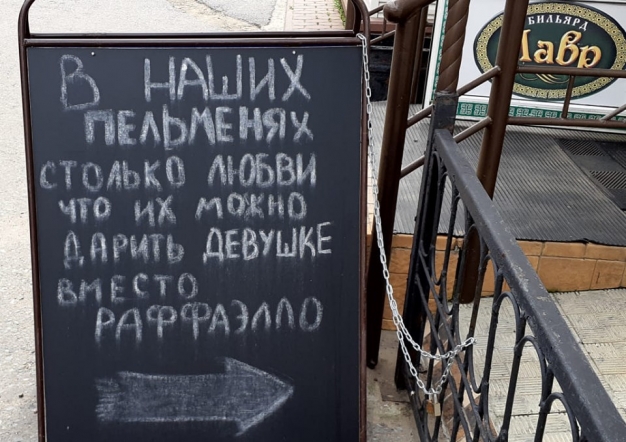 В НАШИХ
ПЕЛЬМЕНЯХ
СТОЛЬКО ЛЮБВИ
ЧТО ИХ МОЖНО
ДАРИТЬ ДЕВУШКЕ
ВМЕСТО
РАФФАЭЛЛО
БИЛЬЯРД
Лавр